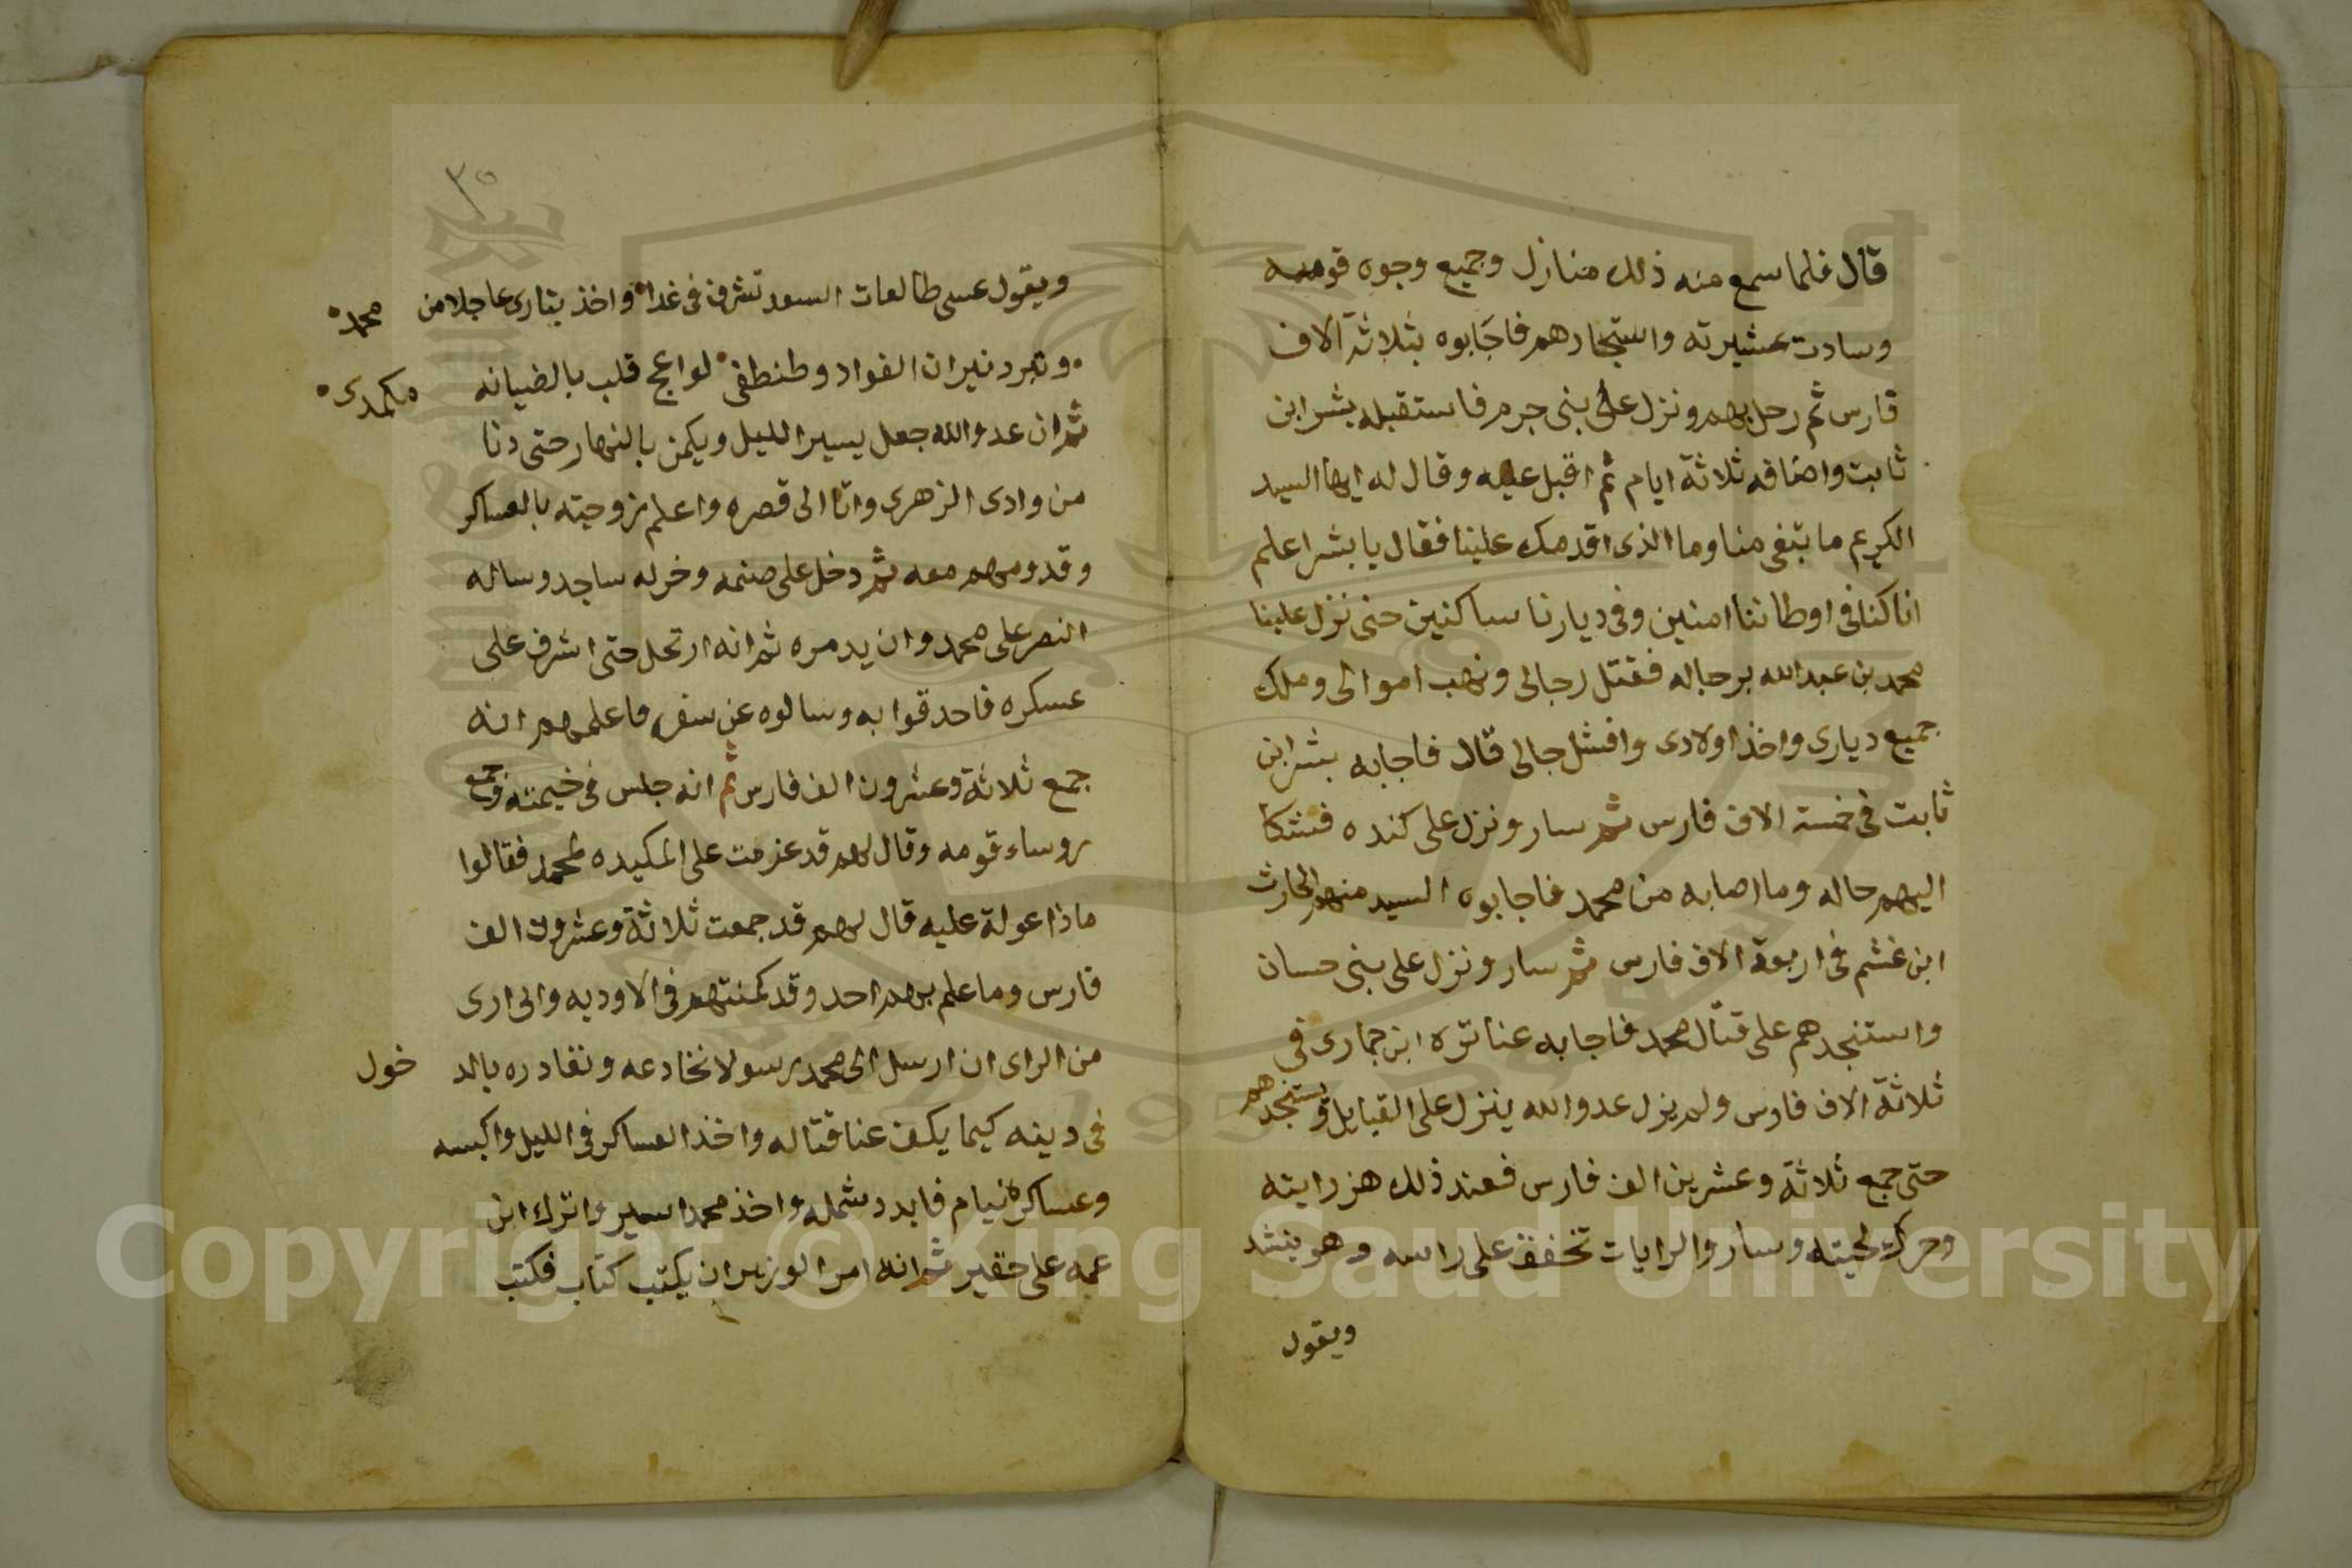 قال فلما سمع منه ذلك منازل وجميع وجوه قومه
وسادت عشيرته واستجارهم فاجابوه بثلاثة الاف
فارس ثم رحل بهم ونزل على بني جرم فاستقبله بشر ابن
ثابت واضافه ثلاثة ايام ثم اقبل عليه وقال له ايها السيد
الكريم ما تبغى منا وما الذي اقدمك علينا فقال يا بشر اعلم
انا كنا في اوطاننا امنين وفي ديارنا ساكنين حتى نزل علينا
محمد بن عبد الله برجاله فقتل رجالي ونهب اموالي وملك
جميع دياري واخذ اولادي وافشل جالي قال فاجابه بشر ابن
ثابت في خمسة الاف فارس ثم سار ونزل على كنده فشكا
اليهم حاله وما اصابه من محمد فاجابوه السيد منهم الحارث
ابن غشم في اربعة الاف فارس ثم سار ونزل على بني حسان
واستنجدهم على قتال محمد فاجابه عناتره ابن جماري في
ثلاثة الاف فارس ولم يزل عدو الله ينزل على القبايل ويستنجدهم
حتى جمع ثلاثة وعشرين الف فارس فعند ذلك هز رايته
وحرك لحيته وسار والرايات تخفق على راسه وهو ينشد
ويقول
٣٥
ويقول عسى طالعات السعد تشرف في غدا واخذ بتاري عاجلا من محمد
وتبرد نيران الفواد وطنطفى لواعج قلب بالضيانه مكمدي
ثم ان عدو الله جعل يسير الليل ويكمن بالنهار حتى دنا
من وادي الزهري واتا الى قصره واعلم زوجته بالعساكر
وقدومهم معه ثم دخل على صنمه وخر له ساجد وساله
النصر على محمد وان يدمره ثم انه ارتحل حتى اشرف على
عسكره فاحدقوا به وسالوه عن سفره فاعلمهم انه
جمع ثلاثة وعشرون الف فارس ثم انه جلس في خيمته وجمع
روساء قومه وقال لهم قد عزمت على المكيده لمحمد فقالوا
ماذا عولة عليه قال لهم قد جمعت ثلاثة وعشرون الف
فارس وما علم بهم احد وقد كمنتهم في الاوديه واني ارى
من الراى ان ارسل الى محمد رسولا نخادعه ونقادره بالد خول
في دينه كيما يكف عنا قتاله واخذ العساكر في الليل واكبسه
وعساكره نيام فابدد شمله واخذ محمد اسير واترك ابن
عمه على حقير ثم انه امر الوزير ان يكتب كتاب فكتب
Copyright © King Saud University